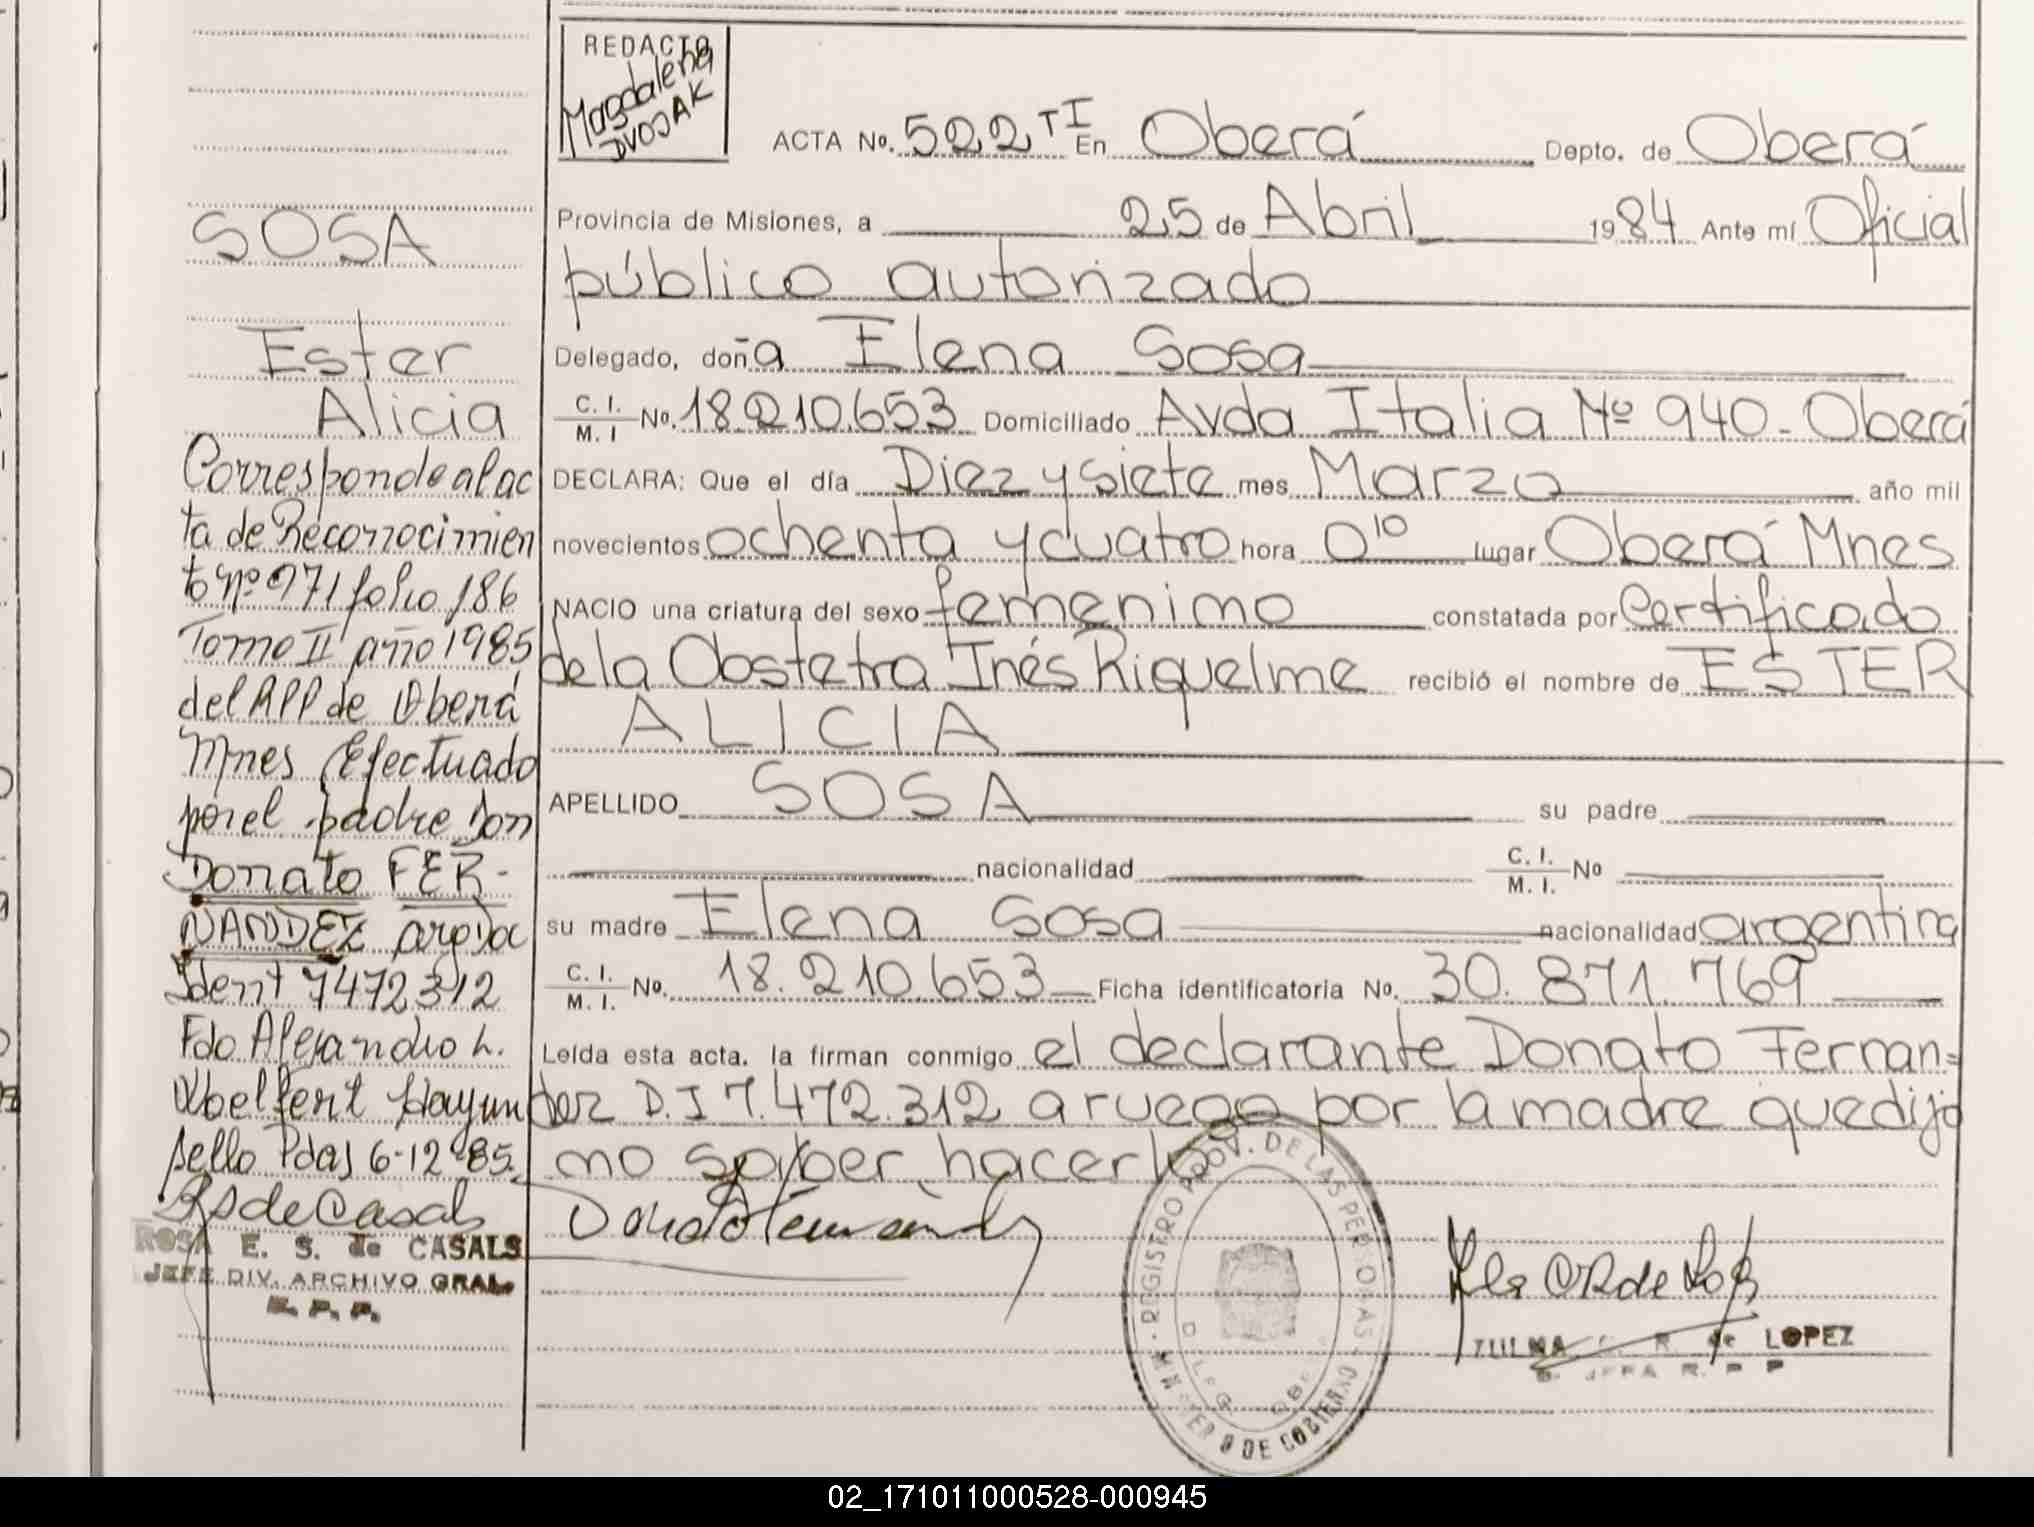 REDACTO
Magdalena
DVOJAK
ACTA No. 522 T I En Oberá Depto. de Oberá
Provincia de Misiones, a 25 de Abril 1984 Ante mí Oficial
público autorizado
Delegado, doña Elena Sosa
C. I. / M. I No. 18.210.653 Domiciliado Avda Italia Nº 940 - Oberá
DECLARA: Que el día Diez y siete mes Marzo año mil
novecientos ochenta y cuatro hora 0 10 lugar Oberá Mnes
NACIO una criatura del sexo femenino constatada por Certificado
de la Obstetra Inés Riquelme recibió el nombre de ESTER
ALICIA
APELLIDO SOSA su padre
nacionalidad C. I. / M. I. No
su madre Elena Sosa nacionalidad argentina
C. I. / M. I. No. 18.210.653 Ficha identificatoria No. 30.871.769
Leída esta acta. la firman conmigo el declarante Donato Fernan=
dez D.I 7.472.312 a ruego por la madre que dijo
no saber hacerlo
Donato Fernandez
REGISTRO PROV. DE LAS PERSONAS
DE GOBIERNO
ZULMA R. de LOPEZ
JEFA R. P P
SOSA
Ester
Alicia
Corresponde al ac
ta de Reconocimien
to Nº 971 folio 186
Tomo II año 1985
del RPP de Oberá
Mnes Efectuado
por el padre Don
Donato FER-
NANDEZ arg Doc
Ident 7472312
Fdo Alejandro L.
hay un
sello Pdas 6-12-85.
RS de Casals
ROSA E. S. de CASALS
JEFE DIV. ARCHIVO GRAL.
R. P. P.
02_171011000528-000945